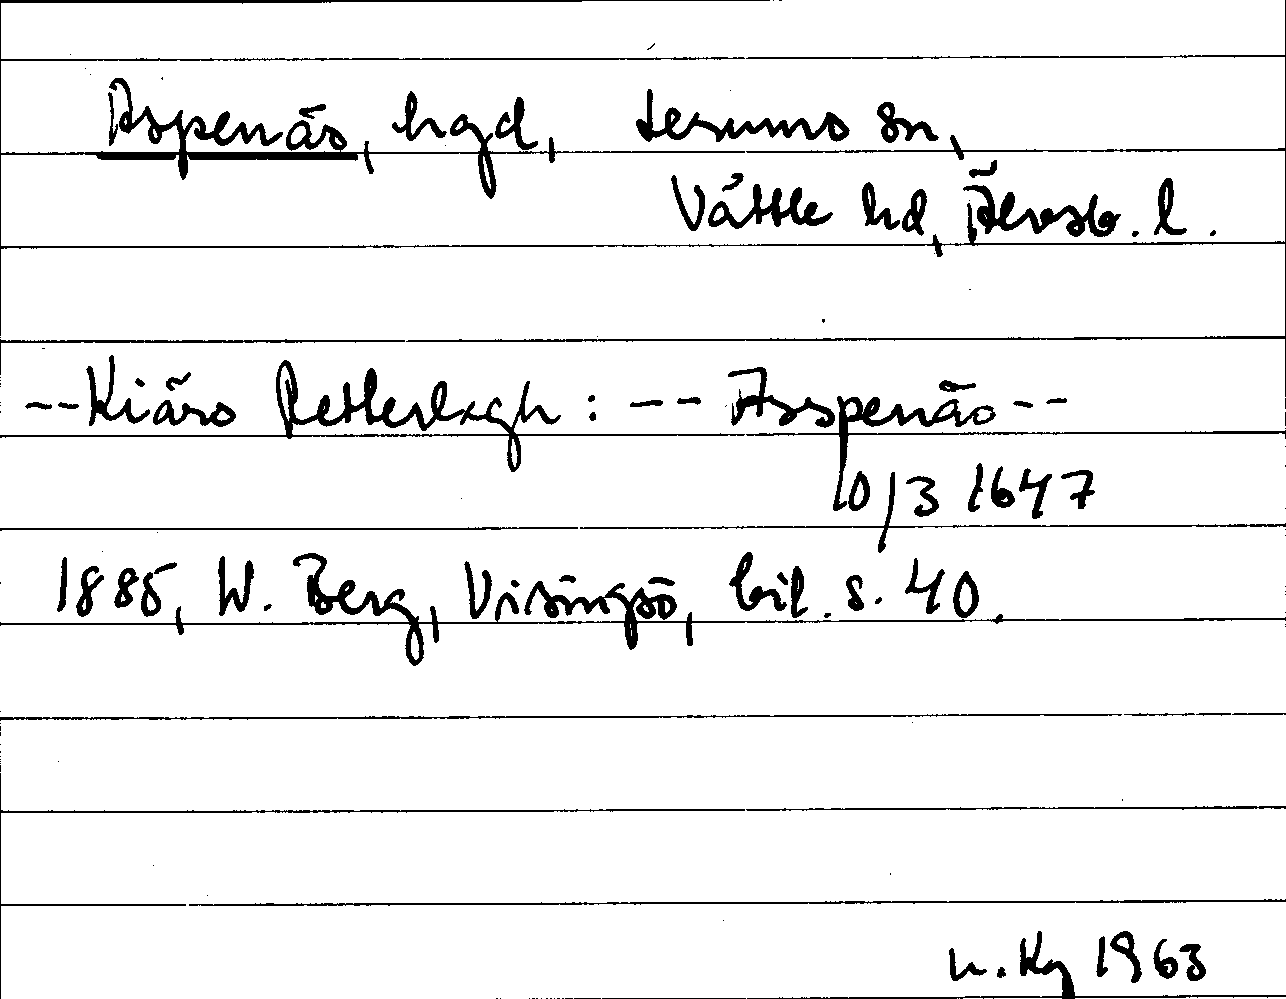 Aspenäs, hgd, Lerums sn,
Vättle hd, Älvsb. l.
--Kiärs Retterlxgh: -- Asspenäs--
10/3 1647
1885, W. Berg, Visingsö, bil. s. 40.
n. Kg 1963